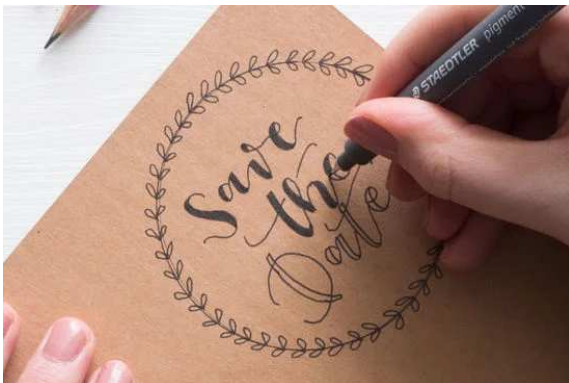 Save
the
Date
STAEDTLER pigment